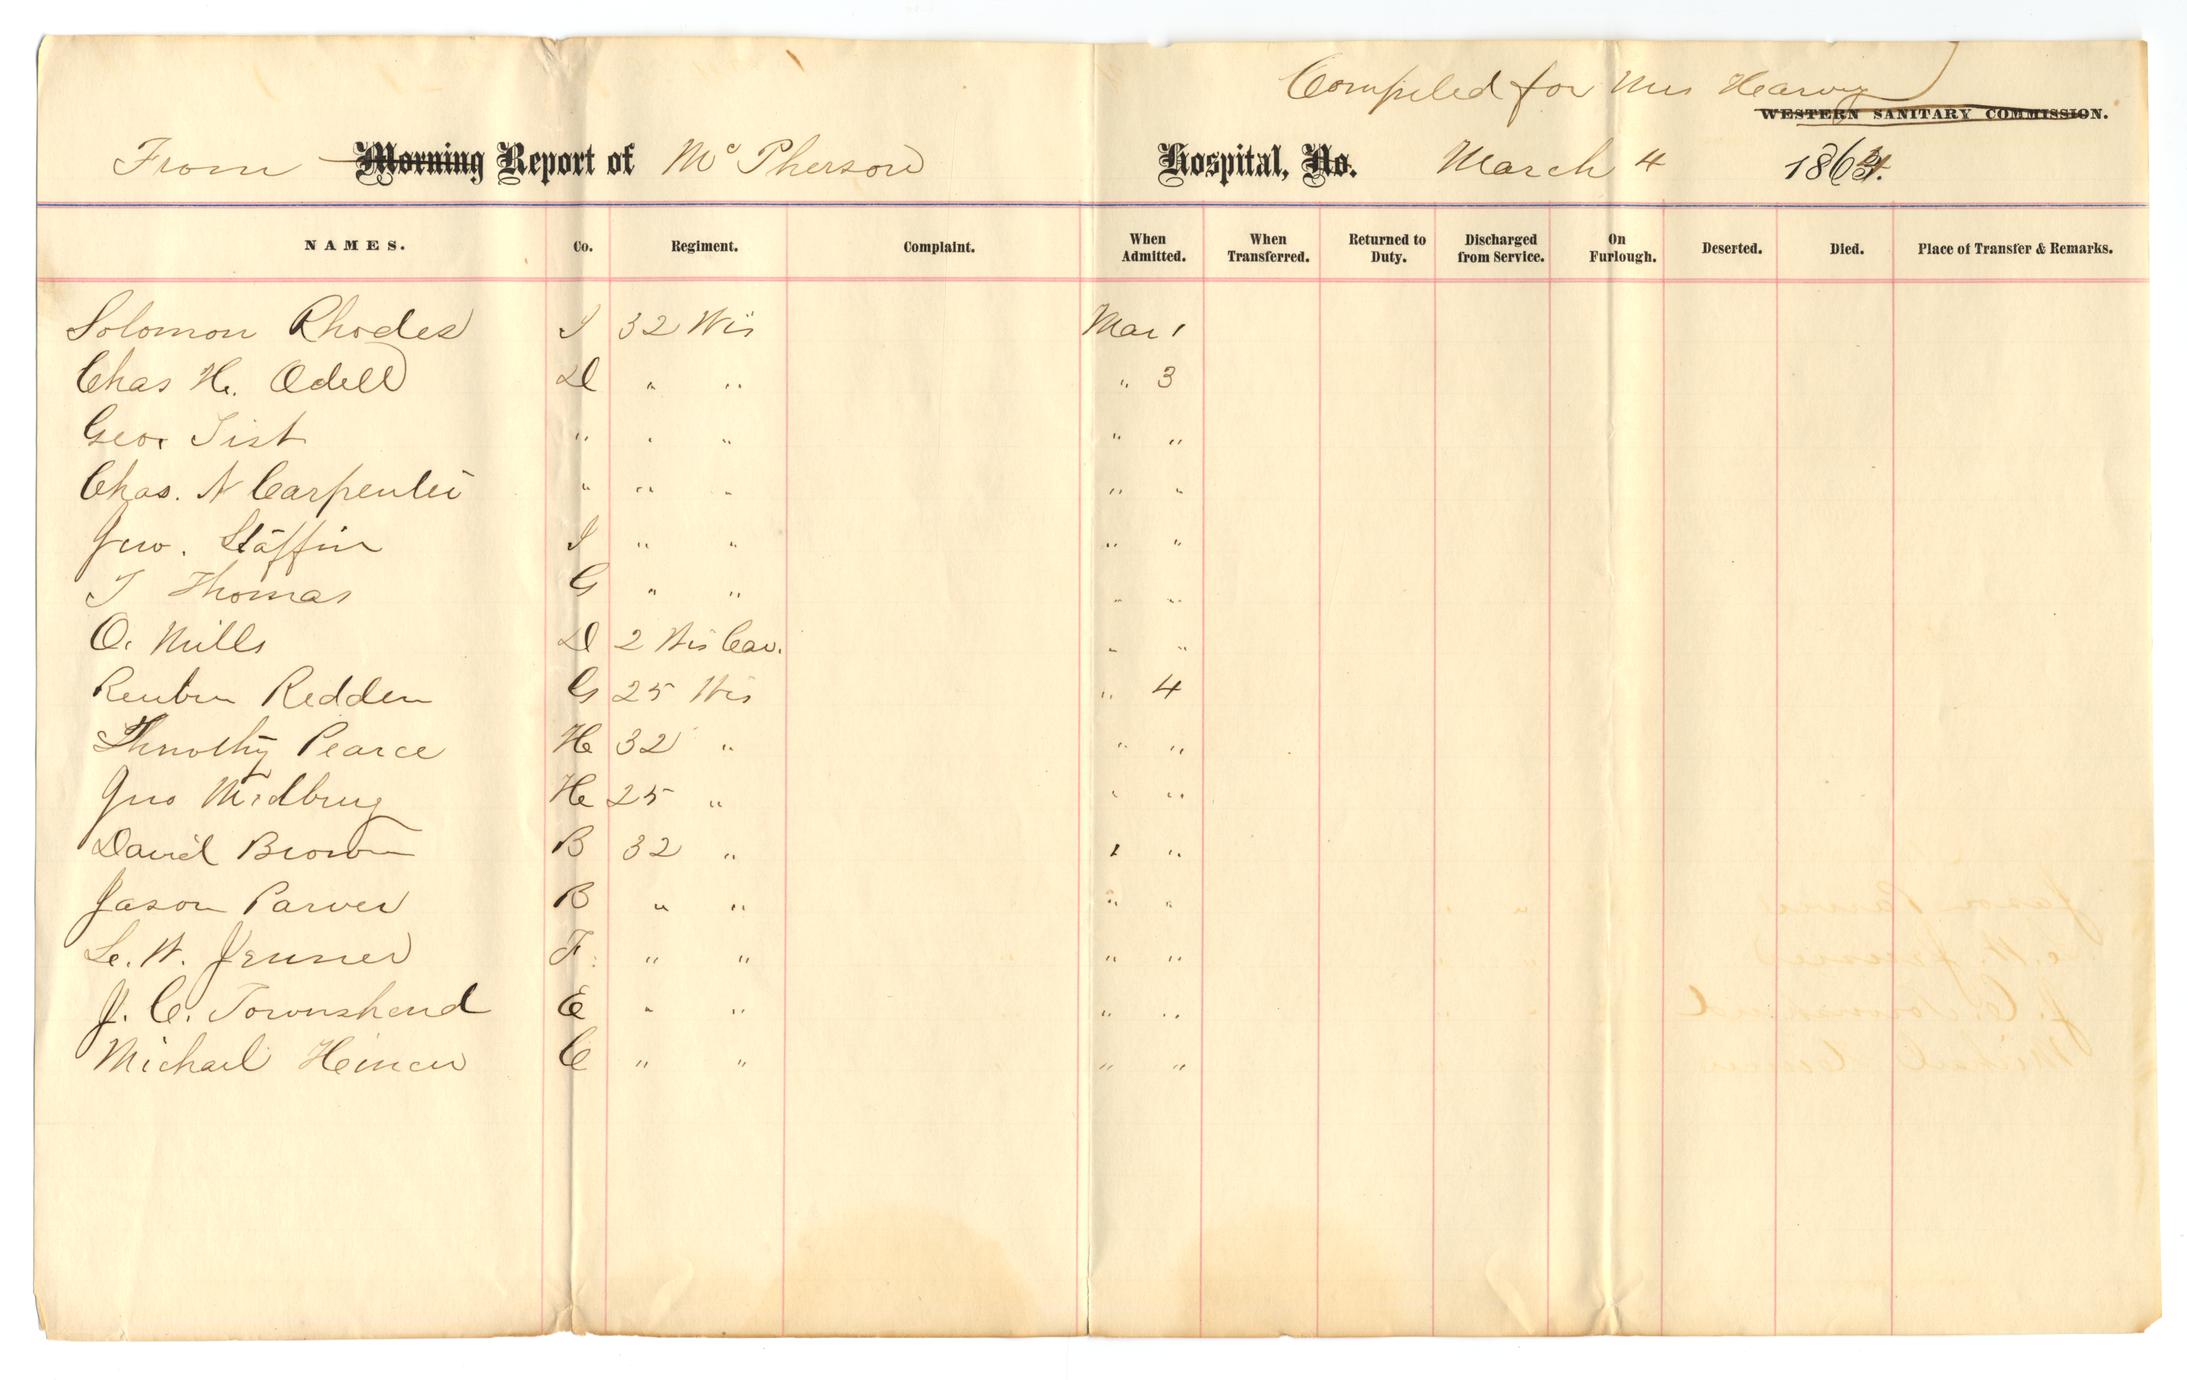 Compiled for Mrs Harvey
WESTERN SANITARY COMMISSION.
From Morning Report of McPherson Hospital, No. March 4 1864.
NAMES. Co. Regiment. Complaint. When Admitted. When Transferred. Returned to Duty. Discharged from Service. On Furlough. Deserted. Died. Place of Transfer & Remarks.
Solomon Rhodes I 32 Wis Mar 1
Chas H. Odell D " " " 3
Geo. Tist " " " " "
Chas. N Carpenter " " " " "
Jno. Staffin I " " " "
T Thomas G " " " "
O. Mills D 2 Wis Cav. " "
Reuben Redden G 25 Wis " 4
Timothy Pearce H 32 " " "
Jno Medbury H 25 " " "
David Brown B 32 " " "
Jason Parver B " " " "
L. W. Jenner F. " " " "
J. C. Townshend E " " " "
Michael C " " " "